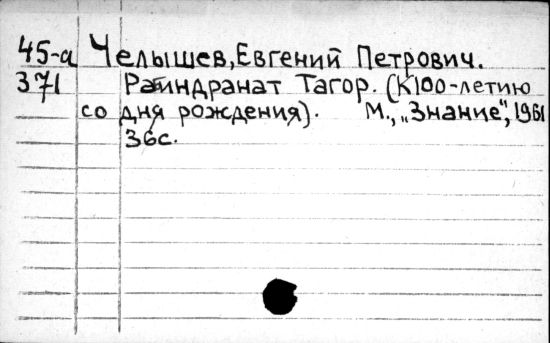 45-а Челышев, Евгений Петрович.
371 Рабиндранат Тагор. (К 100-летию
со дня рождения). М., „Знание“, 1961
36с.